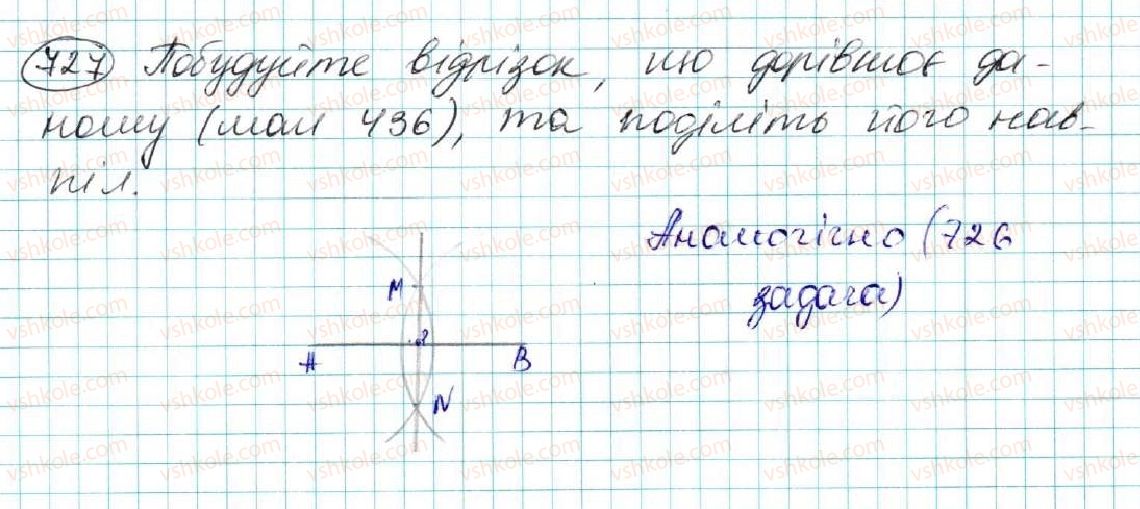 727 Побудуйте відрізок, що дорівнює да-
ному (мал 436), та поділіть його нав-
піл.
Аналогічно (726
задача)
M
A
B
N